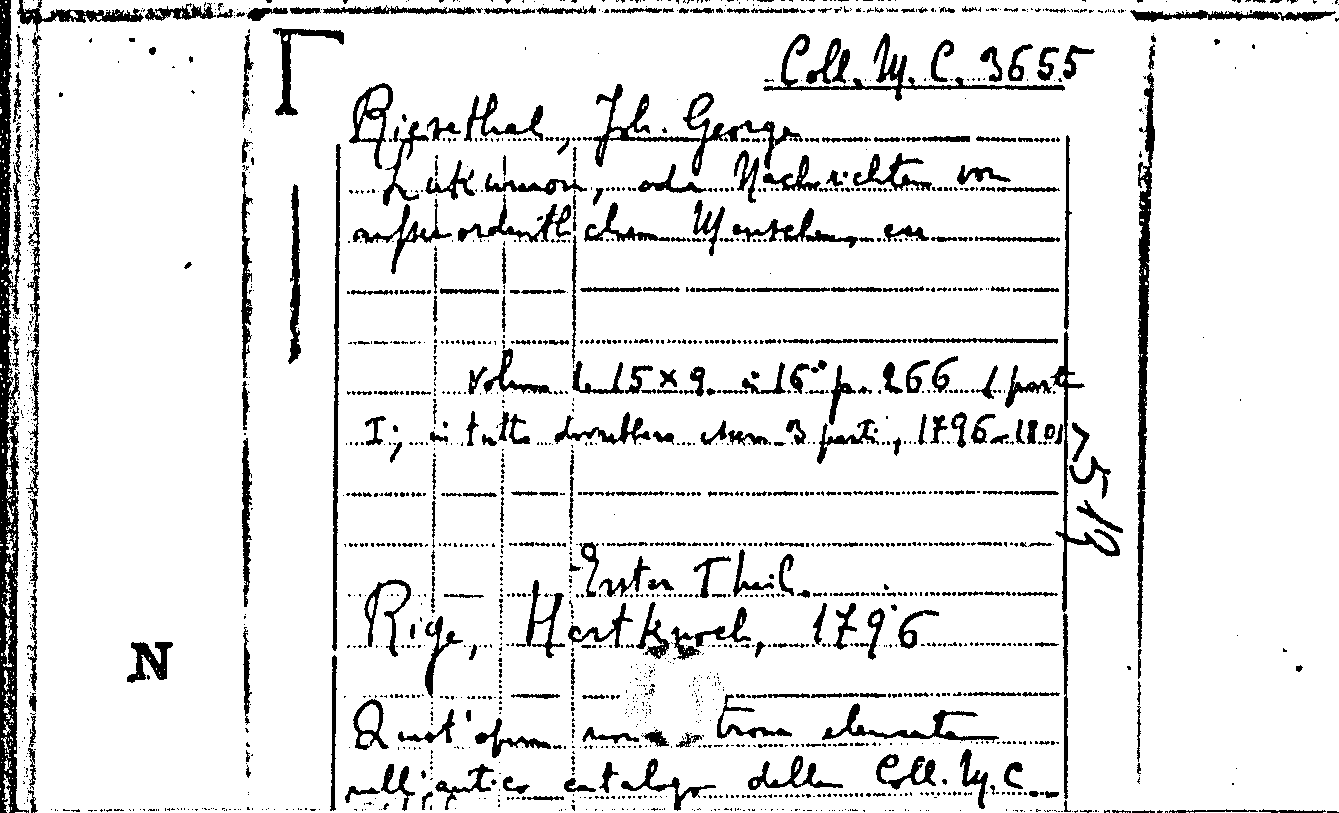 Coll. M. C. 3655
Riesenthal, Joh. George
Lukumon, oder Nachrichten von
aufserordentlichem Menschen, ein
Volume 1. 15 x 9. in 16° p. 266 (parte
I; in tutto dovrebbero essere 3 parti, 1796-1801
519
Erster Theil.
Riga, Hartknoch, 1796
N
Quest'opera non si trova elencata
nell'antico catalogo della Coll. M. C.